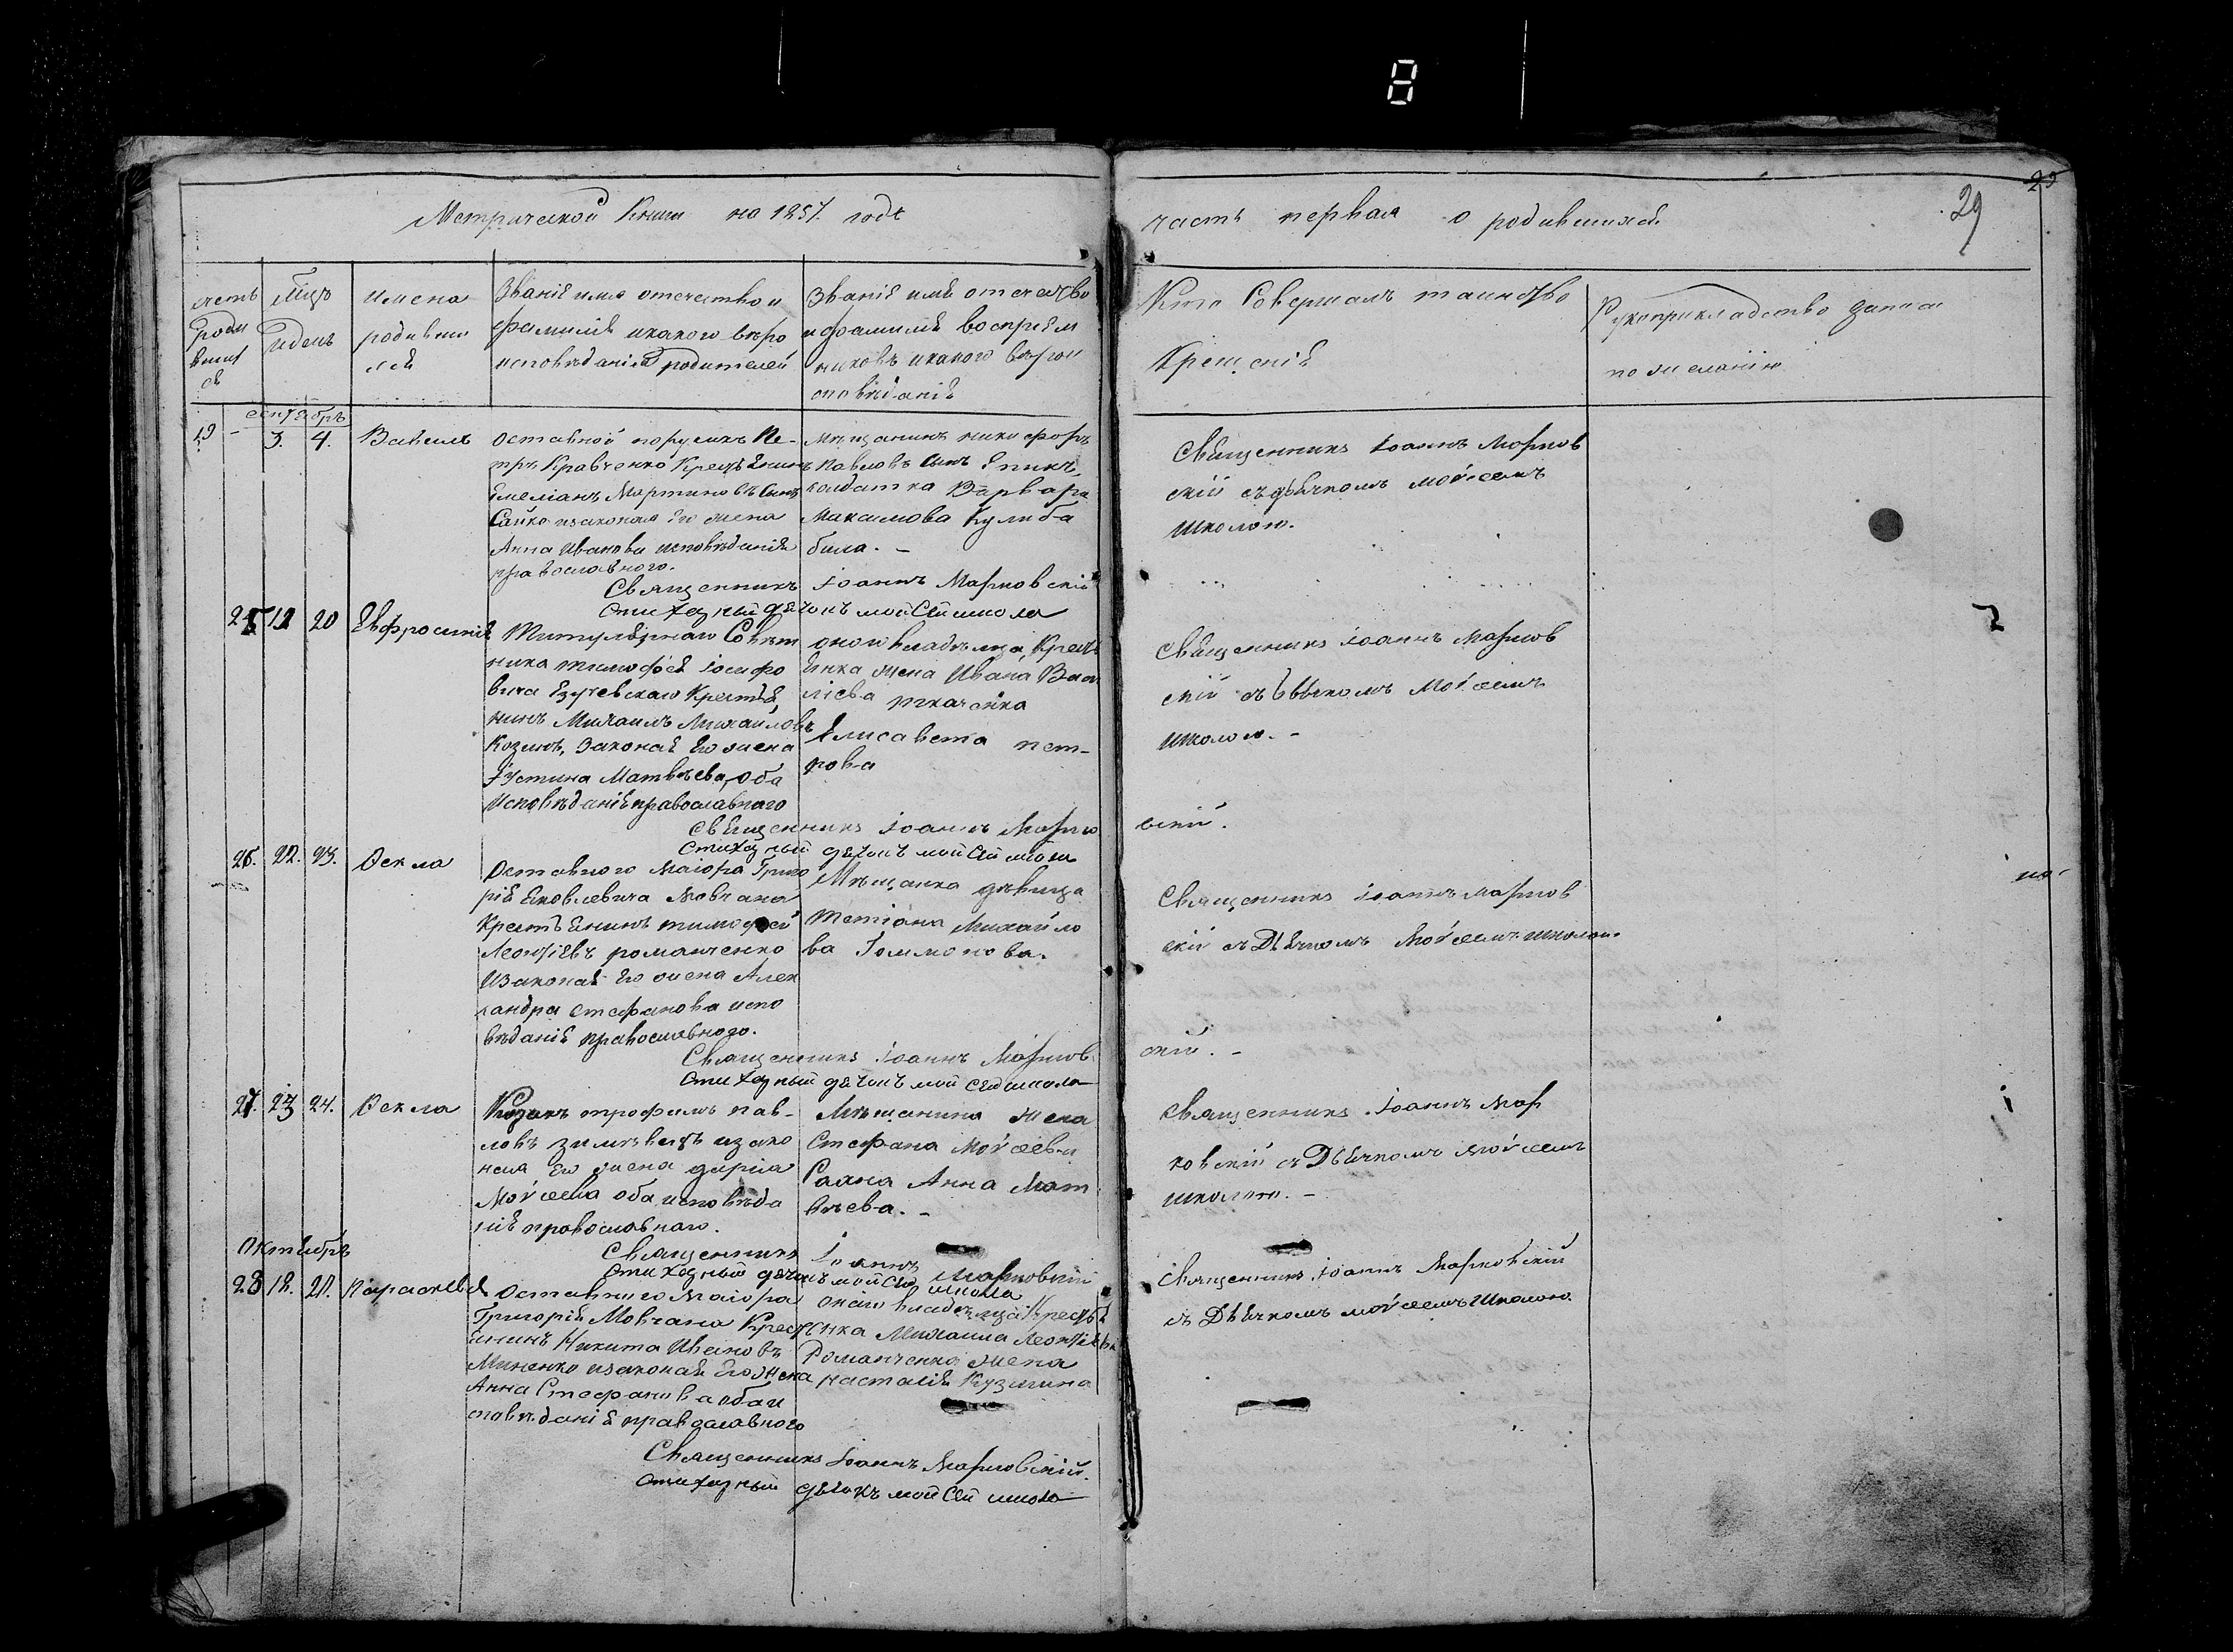 Метрической Книги на 1857 годъ
часть первая о родившихся.
29
счетъ родившихся
Мцъ и день
имена
родивши
хся
Званіе имя отечество и
фамилія и какого веро
исповѣданія родителей
Званіе имя отечество
и фамилія воспріем
никовъ и какого вѣрои
сповѣданія
Кто Совершалъ таинство
Крещенія
Рукоприкладство записи
по желанію
сентябрь
19 - 3. 4. Василь
оставной поручикъ Пе-
тръ Кравченко Крестьянинъ
Емеліанъ Мартиновъ Сынъ
Сайко изаконая Его жена
Анна Иванова исповѣданія
православного.
мѣщанинъ никифоръ
Павловъ Сынъ
солдатка Варвара
Максимова Кулиба
била. -
Священникъ Іоаннъ Марков
скій съ дьячкомъ мойсеемъ
школою.
Священникъ Іоаннъ Марковскій
Стихарный дьячокъ мойсей школа
25 19 20 Евфросинія
Титулярнаго Совѣт
ника тимофея Іосифо
вича Крестья
нинъ Михаилъ Михайловъ
Козинъ, Законая Его жена
Іустина Матвѣева, оба
Исповѣданія православнаго
оного владѣлца, Крестья
янка жена Ивана Васи
лієва ткаченка
Елисавета пет-
рова
Священникъ Іоаннъ Марков
скій съ Дьячкомъ Мойсеемъ
школою. -
Священникъ Іоаннъ Марко
вскій.
Стихарный дьячокъ мойсей школа
26. 22. 23. Фекла
Оставного Маіора Григо
рія Яковлевича Мовчана
Крестьянинъ тимофей
Леонтіевъ романченко
Изаконая Его жена Алек
сандра Стефанова испо
вѣданія православного.
Мѣщанка дѣвица
Тетіана Михайло
ва
Священникъ Іоаннъ Марков
скій съ Дьячкомъ Мойсеемъ школою.
Священникъ Іоаннъ Марков
скій. -
Стихарный дьячокъ мойсей школа
27. 23 24. Фекла
Козакъ трофимъ пав-
ловъ изако
ная Его жена дарія
Мойсеева оба исповѣда
нія православнаго.
Мѣщанина жена
Стефана Мойсеева
Анна Мат
вѣева. -
Священникъ Іоаннъ Мар
ковскій съ Дьячкомъ Мойсеемъ
школою. -
Священникъ Іоаннъ Марковскій
Стихарный дьячокъ мойсей школа
Октябрь
28 18. 20. Параскевія
Оставного Маіора
Григорія Мовчана Крест
янинъ Никита Ивановъ
Миненко изаконая Его жена
Анна Стефанова оба и
сповѣданія православного
онаго владѣлца Крестья
янка Михаила Леонтіева
Романченка жена
настасія Кузмина
Священникъ Іоаннъ Марковскій
съ Дьячкомъ мойсеемъ Школою.
Священникъ Іоаннъ Марковскій.
Стихарный дьячокъ мойсей школа